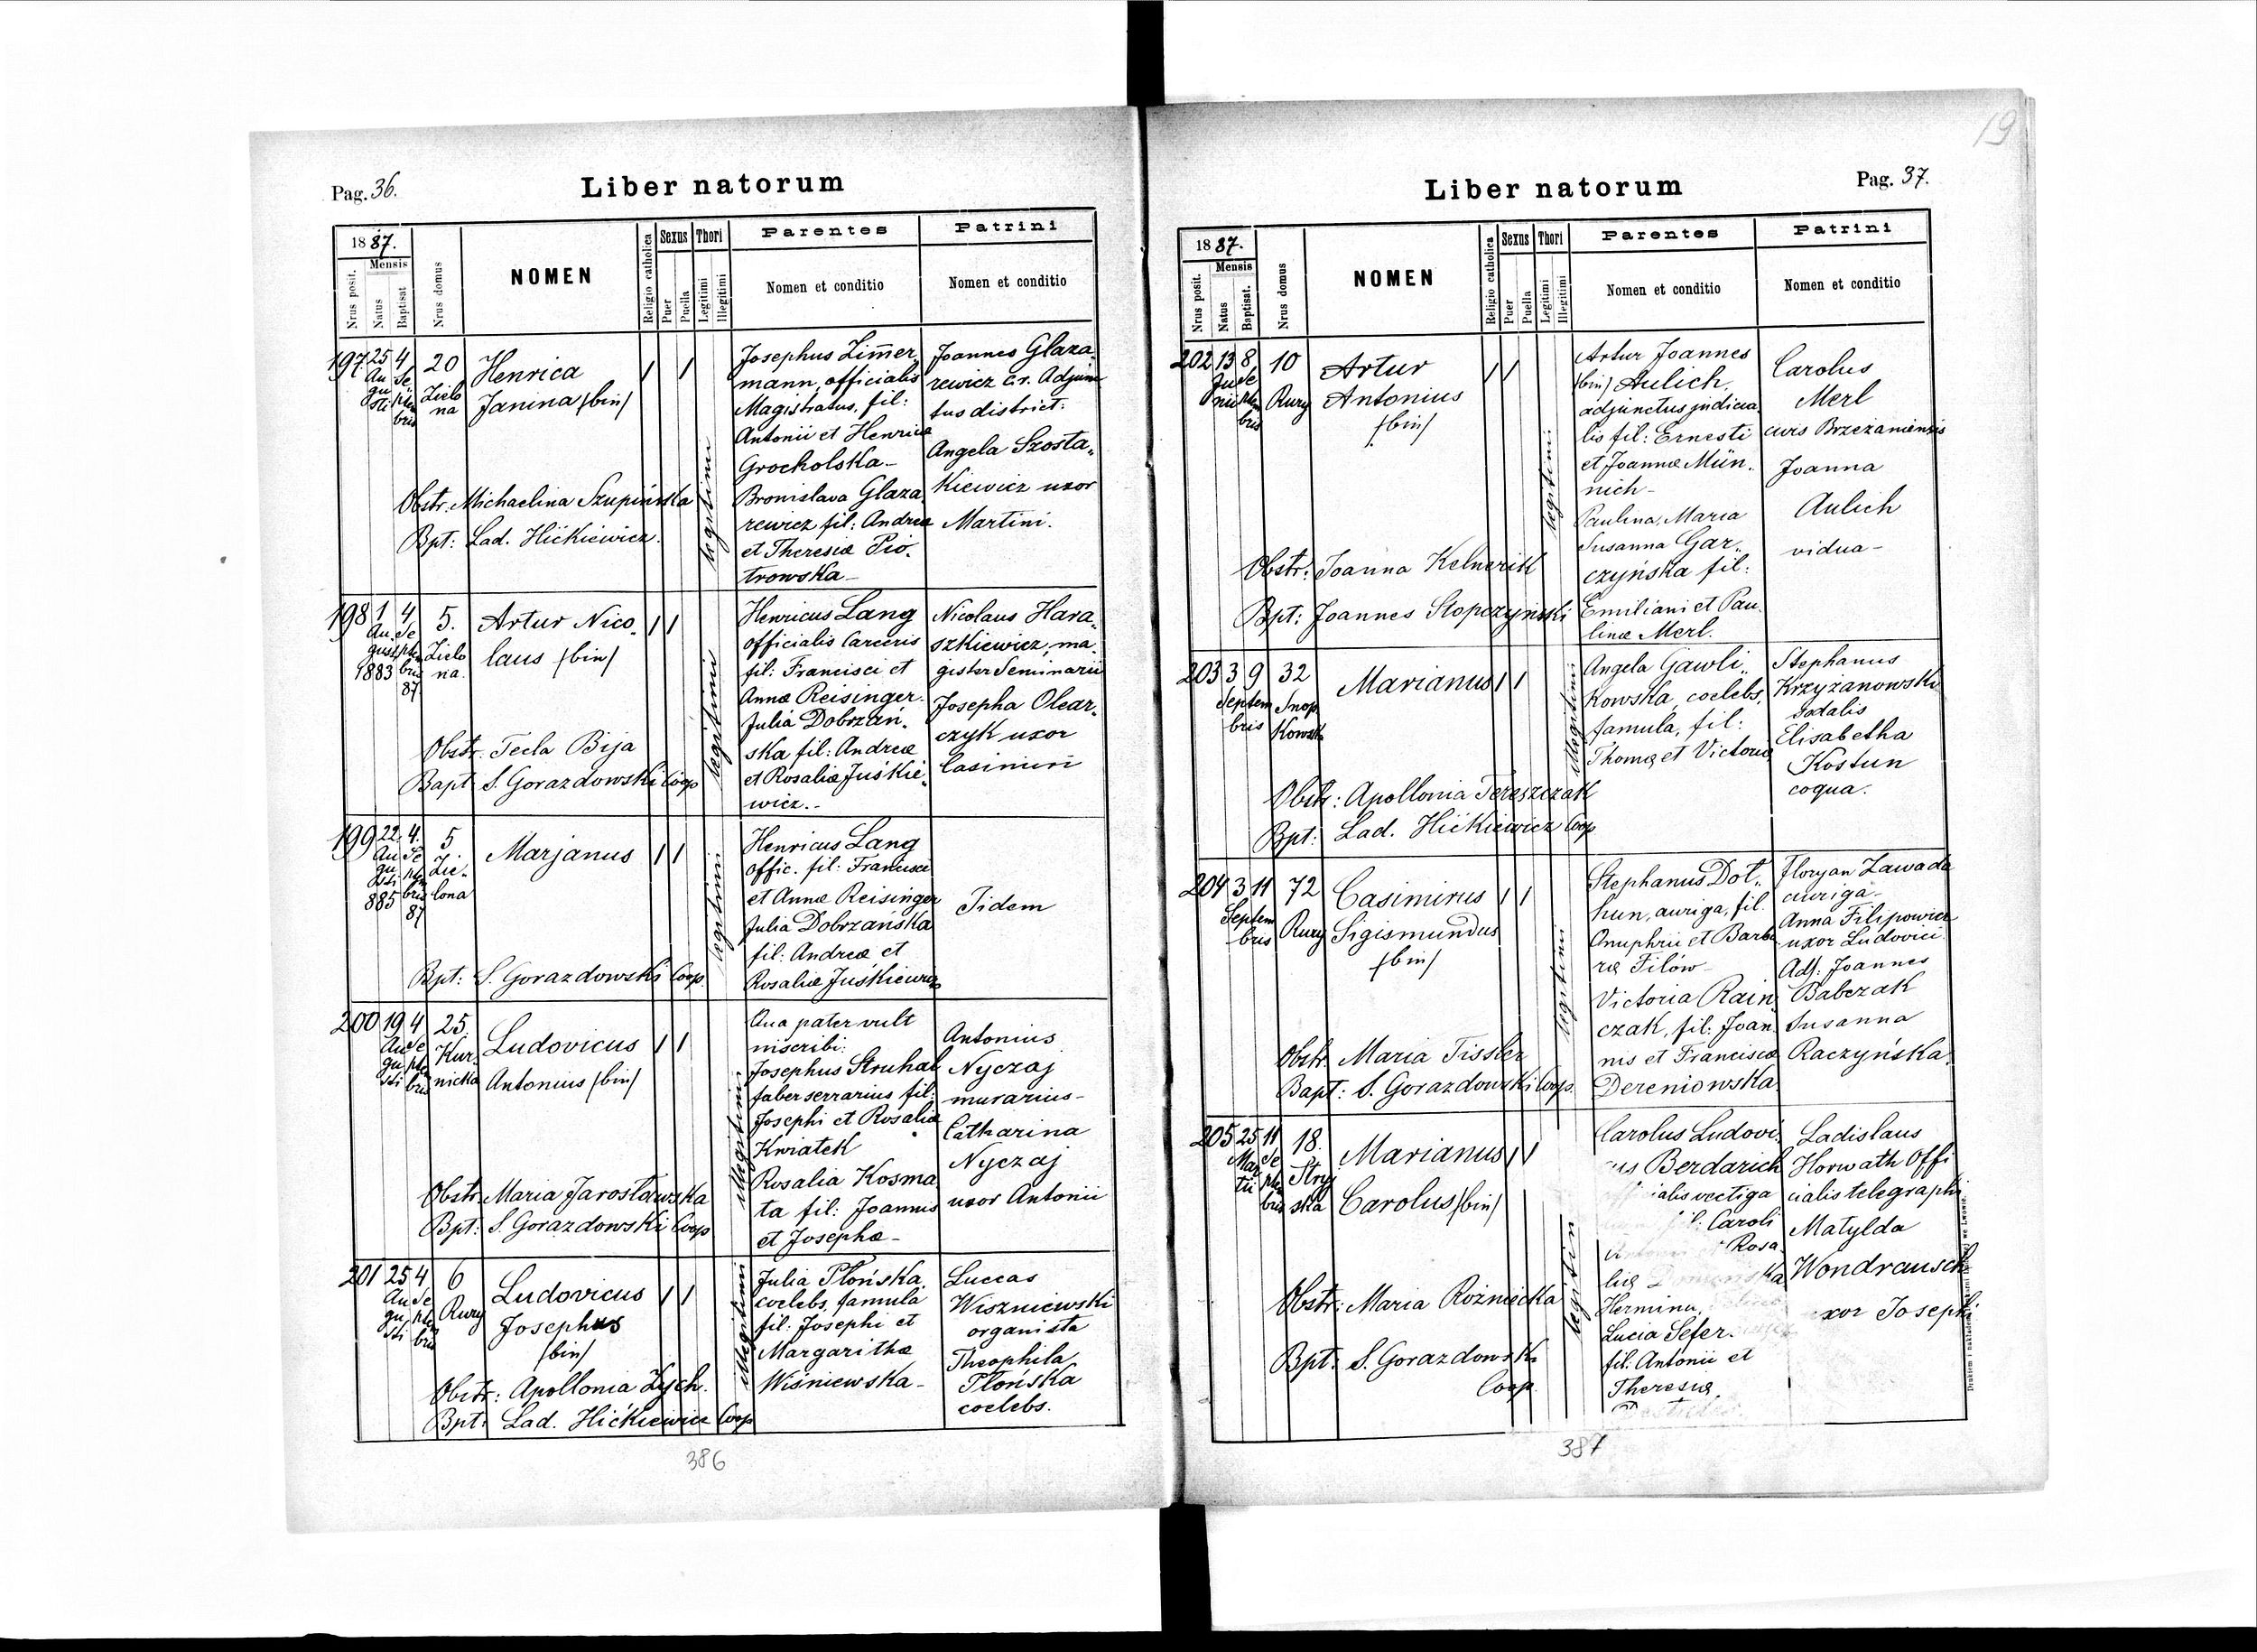 19
Pag. 36.
Liber natorum
1887.
Mensis
Nrus posit.
Natus
Baptisat
Nrus domus
NOMEN
Religio catholica
Sexus
Puer
Puella
Thori
Legitimi
Illegitimi
Parentes
Nomen et conditio
Patrini
Nomen et conditio
197 25 4 20
Au Se
gu ptem
sti bris
Zielo
na
Henrica
Janina /bin/
Obstr. Michaelina Szupińska
Bpt: Lad. Hićkiewicz.
legitimi
Josephus Zimer„
mann, officialis
Magistratus, fil:
Antonii et Henricæ
Grocholska –
Bronislava Glaza
rewicz fil: Andreæ
et Theresiæ Pio„
trowska –
Joannes Glaza„
rewicz c.r. Adjunc
tus district:
Angela Szosta„
Kiewicz uxor
Martini.
198 1 4 5.
Au. Se
gusti ptem
1883 bris
87
Zielo
na.
Artur Nico„
laus /bin/
Obstr. Tecla Bija
Bapt S. Gorazdowski Coop
legitimi
Henricus Lang
officialis Carceris
fil: Francisci et
Annæ Reisinger.
Julia Dobrzań„
ska fil: Andreæ
et Rosaliæ Juśkie„
wicz. –
Nicolaus Hara„
szkiewicz, ma„
gister Seminarii
Josepha Olear„
czyk uxor
Casimiri
199 22. 4. 5
Au Se
gu pte
sti bris
885 87
Zie„
lona
Marjanus
Bpt: S. Gorazdowski Coop.
legitimi
Henricus Lang
offic. fil: Francisci
et Annæ Reisinger
Julia Dobrzańska
fil: Andreæ et
Rosaliæ Juśkiewicz
Iidem
200 19 4 25.
Au Se
gu ptem
sti bris
Kur„
nicka
Ludovicus
Antonius /bin/
Obstr. Maria Jarosławska
Bpt: S. Gorazdowski Coop
illegitimi
Qua pater vult
inscribi:
Josephus Struhal
faber serrarius fil:
Josephi et Rosaliæ
Kwiatek
Rosalia Kosma
ta fil: Joannis
et Josephæ –
Antonius
Nyczaj
murarius –
Catharina
Nyczaj
uxor Antonii
201 25 4 6
Au Se
gu pte
sti bris
Rury
Ludovicus
Josephus
/bin/
Obstr: Apollonia Zych.
Bpt: Lad. Hićkiewicz Coop
illegitimi
Julia Płońska,
coelebs, famula
fil: Josephi et
Margarithæ
Wiśniewska –
Luccas
Wiszniewski
organista
Theophila
Płońska
coelebs.
386
Liber natorum
Pag. 37.
1887.
Mensis
Nrus posit.
Natus
Baptisat.
Nrus domus
NOMEN
Religio catholica
Sexus
Puer
Puella
Thori
Legitimi
Illegitimi
Parentes
Nomen et conditio
Patrini
Nomen et conditio
202 13 8 10
Ju Se
nii ptem
bris
Rury
Artur
Antonius
/bin/
Obstr: Joanna Kelnerik
Bpt: Joannes Stopczyński
legitimi
Artur Joannes
/bin/ Aulich,
adjunctus judicia
lis fil: Ernesti
et Joannæ Mün„
nich –
Paulina, Maria
Susanna Gar„
czyńska fil:
Emiliani et Pau„
linæ Merl.
Carolus
Merl
civis Brzeżaniensis
Joanna
Aulich
vidua –
203 3 9 32
Septem
bris
Snop
Kowsk
Marianus
Obstr: Apollonia Tereszczak
Bpt: Lad. Hićkiewicz Coop
illegitimi
Angela Gawli„
Kowska, coelebs,
famula, fil:
Thomæ et Victoriæ
Stephanus
Krzyżanowski
sodalis
Elisabetha
Kostun
coqua.
204 3 11 72
Septem
bris
Rury
Casimirus
Sigismundus
/bin/
Obstr. Maria Tissler
Bapt: S. Gorazdowski Coop.
legitimi
Stephanus Doł„
hun, auriga, fil.
Onuphrii et Barba
ræ Filów –
Victoria Rain
czak, fil: Joan„
nis et Franciscæ
Dereniowska
Floryan Zawada
auriga –
Anna Filipowicz
uxor Ludovici.
Adj: Joannes
Babczak
Susanna
Raczyńska.
205 25 11 18.
Mar Se
tii ptem
bris
Stryj
ska
Marianus
Carolus /bin/
Obstr: Maria Rożniecka
Bpt: S. Gorazdowski
Coop.
legitim
Carolus Ludovi„
cus Berdarich
officialis vectiga
fil: Caroli
Rosa„
liæ
Hermina,
Lucia Sefer.
fil: Antonii et
Theresiæ
Ladislaus
Horwath Offi
cialis telegraphi
Matylda
Wondrausch
uxor Josephi
387